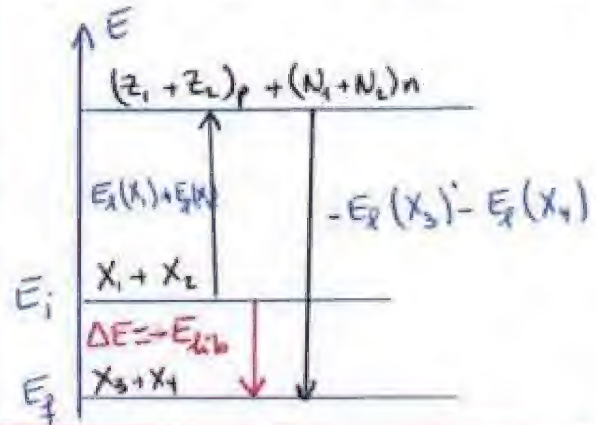 E
(Z₁ + Z₂)p + (N₁+N₂)n
Eℓ(X₁)+Eℓ(X₂)
-Eℓ(X₃)-Eℓ(X₄)
X₁ + X₂
Ei
ΔE=-Elib
X₃+X₄
Ef